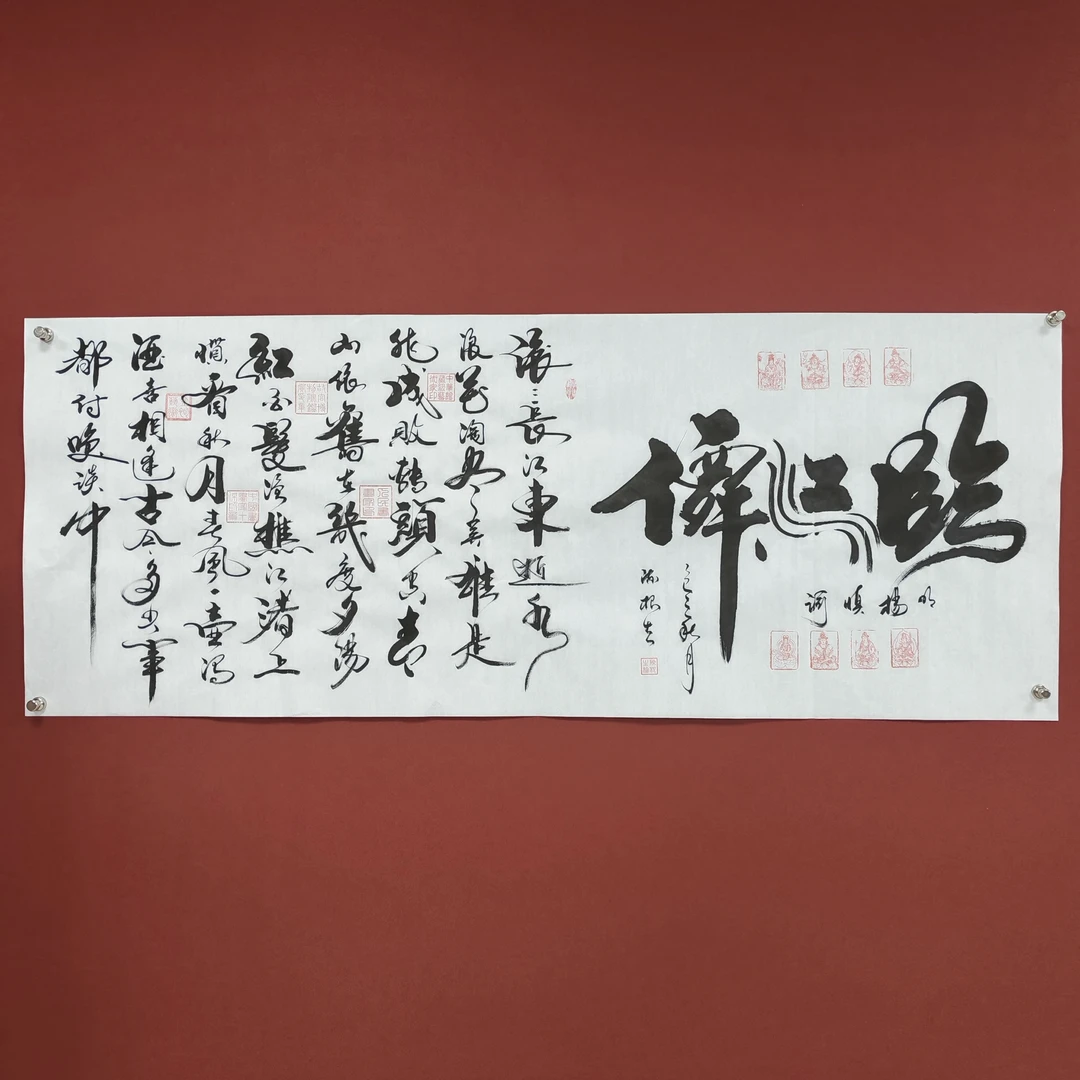 臨江僊
明楊慎詞
秋月
滾滾長江東逝水
浪花淘盡英雄是
非成敗轉頭空青
山依舊在幾度夕陽
紅白髮漁樵江渚上
慣看秋月春風一壺濁
酒喜相逢古今多少事
都付笑談中